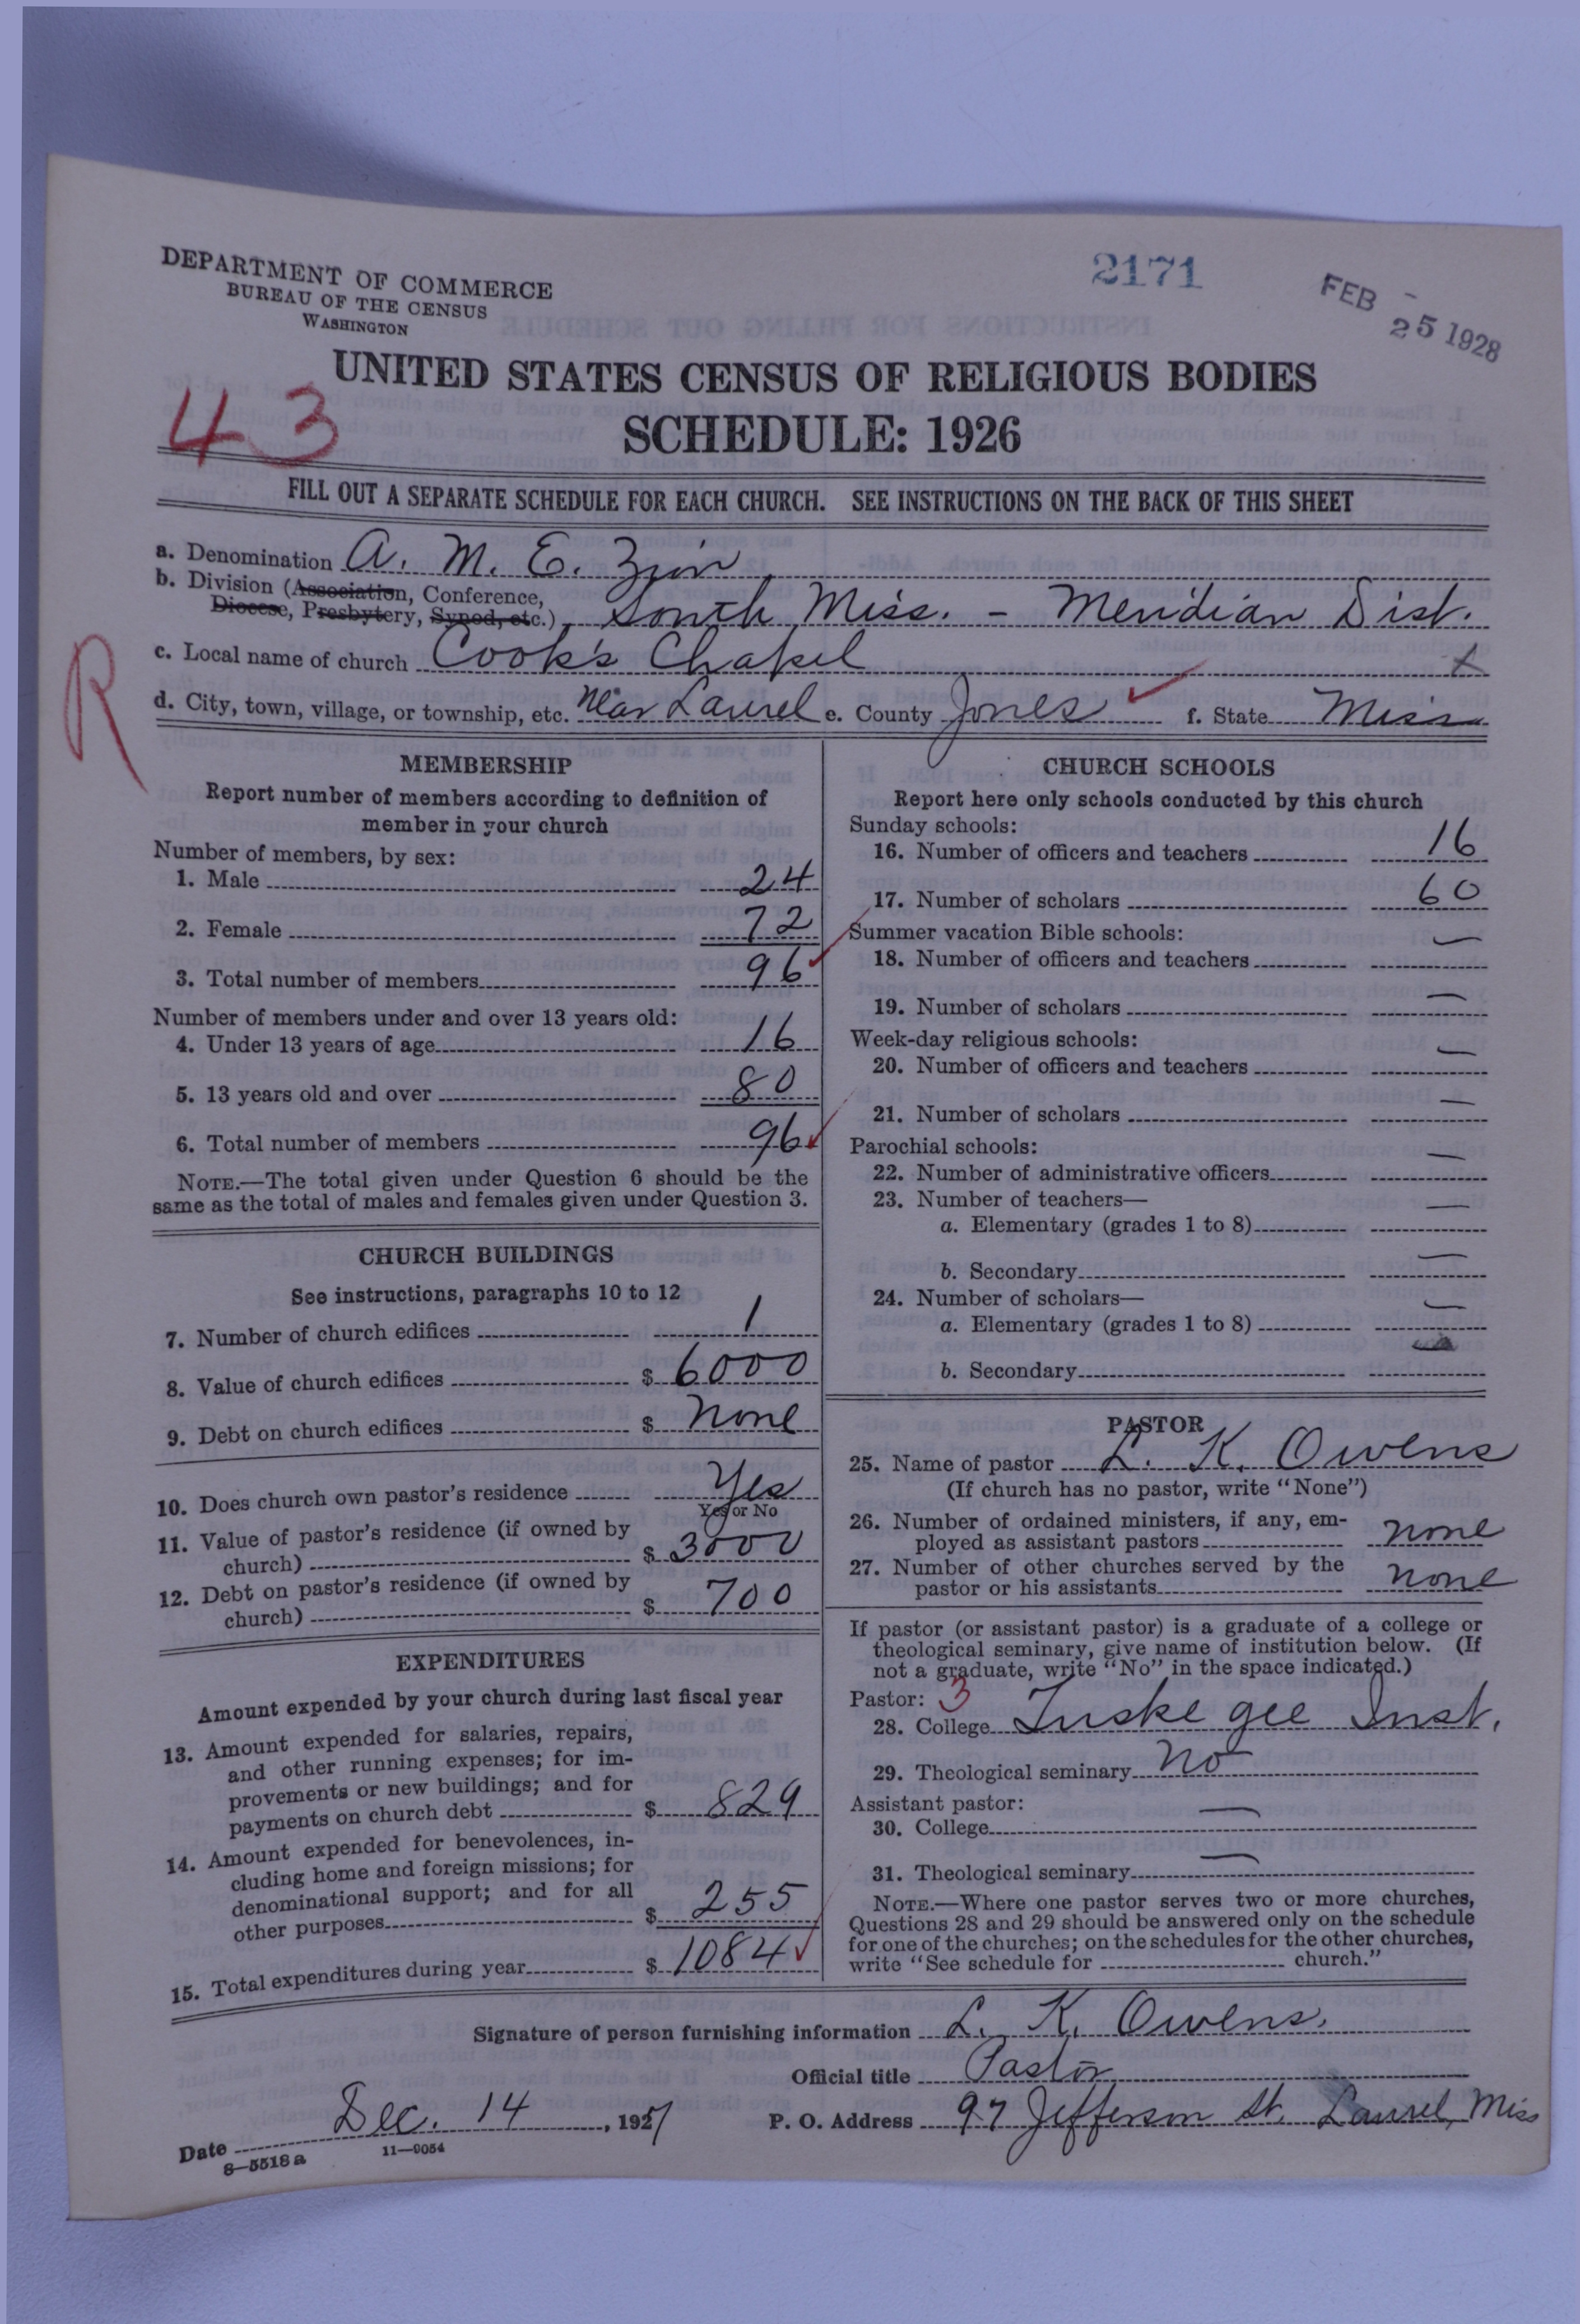 DEPARTMENT OF COMMERCE
BUREAU OF THE CENSUS
WASHINGTON
2171
FEB 25 1928
UNITED STATES CENSUS OF RELIGIOUS BODIES
SCHEDULE: 1926
43
FILL OUT A SEPARATE SCHEDULE FOR EACH CHURCH. SEE INSTRUCTIONS ON THE BACK OF THIS SHEET
a. Denomination A. M. E. Zion
b. Division (Association, Conference,
Diocese, Presbytery, Synod, etc.) South Miss. - Meridian Dist.
c. Local name of church Cook's Chapel
R
d. City, town, village, or township, etc. Near Laurel e. County Jones f. State Miss
MEMBERSHIP
Report number of members according to definition of
member in your church
Number of members, by sex:
1. Male 24
2. Female 72
3. Total number of members 96
Number of members under and over 13 years old:
4. Under 13 years of age 16
5. 13 years old and over 80
6. Total number of members 96
NOTE.—The total given under Question 6 should be the
same as the total of males and females given under Question 3.
CHURCH BUILDINGS
See instructions, paragraphs 10 to 12
7. Number of church edifices 1
8. Value of church edifices $ 6000
9. Debt on church edifices $ None
10. Does church own pastor's residence Yes
Yes or No
11. Value of pastor's residence (if owned by
church) $ 3000
12. Debt on pastor's residence (if owned by
church) $ 700
EXPENDITURES
Amount expended by your church during last fiscal year
13. Amount expended for salaries, repairs,
and other running expenses; for im-
provements or new buildings; and for
payments on church debt $ 829
14. Amount expended for benevolences, in-
cluding home and foreign missions; for
denominational support; and for all
other purposes $ 255
15. Total expenditures during year $ 1084
CHURCH SCHOOLS
Report here only schools conducted by this church
Sunday schools:
16. Number of officers and teachers 16
17. Number of scholars 60
Summer vacation Bible schools:
18. Number of officers and teachers —
19. Number of scholars —
Week-day religious schools:
20. Number of officers and teachers —
21. Number of scholars —
Parochial schools:
22. Number of administrative officers —
23. Number of teachers—
a. Elementary (grades 1 to 8) —
b. Secondary —
24. Number of scholars—
a. Elementary (grades 1 to 8) —
b. Secondary
PASTOR
25. Name of pastor L. K. Owens
(If church has no pastor, write "None")
26. Number of ordained ministers, if any, em-
ployed as assistant pastors None
27. Number of other churches served by the
pastor or his assistants None
If pastor (or assistant pastor) is a graduate of a college or
theological seminary, give name of institution below. (If
not a graduate, write "No" in the space indicated.)
Pastor: 3
28. College Tuskegee Inst.
29. Theological seminary No
Assistant pastor:
30. College —
31. Theological seminary —
NOTE.—Where one pastor serves two or more churches,
Questions 28 and 29 should be answered only on the schedule
for one of the churches; on the schedules for the other churches,
write "See schedule for church."
Signature of person furnishing information L. K. Owens.
Official title Pastor
Date Dec. 14, 1927 P. O. Address 97 Jefferson St. Laurel, Miss
8—5518a 11—9054